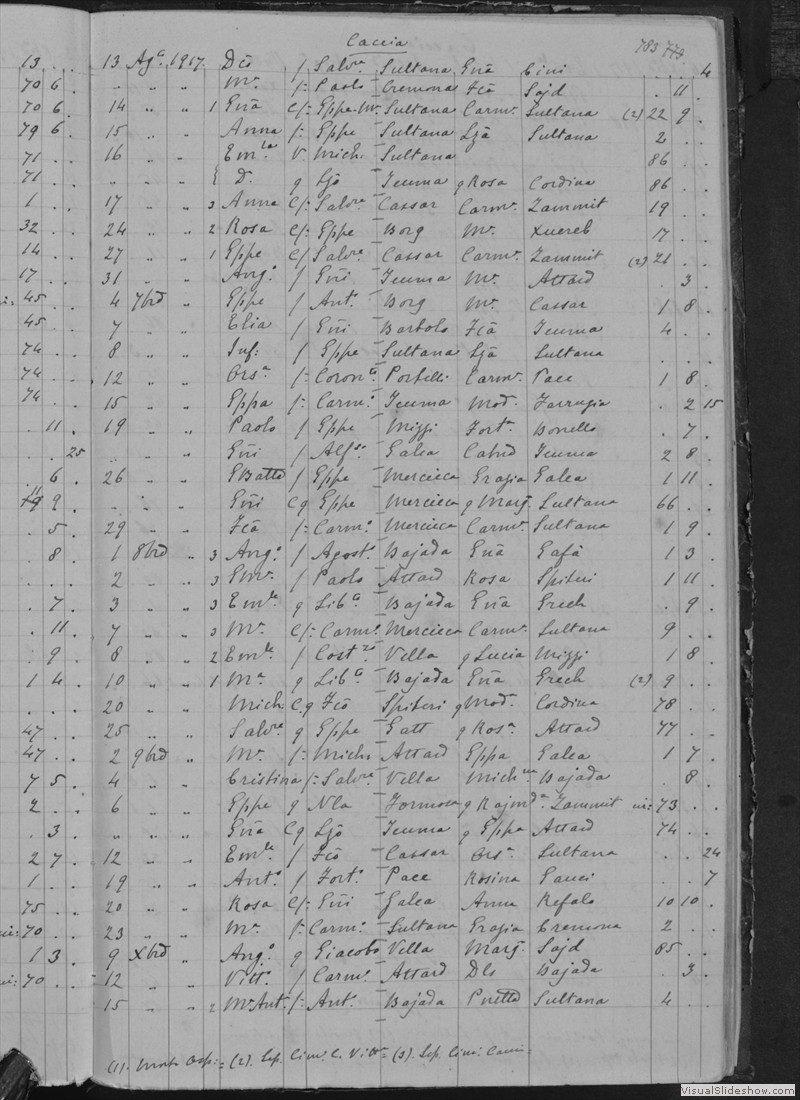 Caccia
783 773
13 . . 13 Ag.ᵃ 1917. Dċō / Salv.ʳᵉ Sultana Enā Cini . . 4
70 6 . „ „ „ M.ᵃ /: Paolo Cremona Fcā Sajd . 11 .
70 6 . 14 „ „ 1 Enā C/: Eppe.M.ᵃ Sultana Carm.ᵃ Sultana (2) 22 9 .
79 6 . 15 „ „ Anna /: Eppe Sultana Ljā Sultana 2 . .
71 . . 16 „ „ V. Mich. Sultana 86 . .
71 . . „ „ „ D. g Ljō Teuma g Rosa Cordina 86 . .
1 . . 17 „ „ 3 Anna C/: Salv.ʳᵉ Cassar Carm.ᵃ Zammit 19 . .
32 . . 24 „ „ 2 Rosa C/: Eppe Borg M.ᵃ Xuereb 17 . .
14 . . 27 „ „ 1 Eppe C/ Salv.ʳᵉ Cassar Carm.ᵃ Zammit (2) 21 . .
17 . . 31 „ „ Ang.ᵒ / Eñi Teuma M.ᵃ Attard . 3 .
45 . . 4 7brē „ Eppe / Ant.ᵒ Borg M.ᵃ Cassar 1 8 .
45 . . 7 „ „ Elia / Eñi Bartolo Fcā Teuma 4 . .
74 . . 8 „ „ Inf: / Eppe Sultana Ljā Sultana . . .
74 . . 12 „ „ Ors.ᵃ /: Coron.ᵗᵒ Portelli Carm.ᵃ Pace 1 8 .
74 . . 15 „ „ Eppa /: Carm.ᵒ Teuma Mod.ᵃ Farrugia . 2 15
. 11 . 19 „ „ Paolo / Eppe Mizzi Fort.ᵃ Bonello . 7 .
. . 25 „ „ „ Eñi / Alf.ˢᵒ Galea Teuma 2 8 .
. 6 . 26 „ „ GBatta / Eppe Mercieca Grazia Galea 1 11 .
9 . „ „ „ Eñi C g Eppe Mercieca g Marg. Sultana 66 . .
. 5 . 29 „ „ Fcā /: Carm.ᵒ Mercieca Carm.ᵃ Sultana 1 9 .
. 8 . 1 8brē „ 3 Ang.ᵒ / Agost.ᵒ Bajada Enā Gafà 1 3 .
. . . 2 „ „ 3 / Paolo Attard Rosa Spiteri 1 11 .
. 7 . 3 „ „ 3 Em.ˡᵉ g Lib.ᵗᵒ Bajada Enā Grech . 9 .
. 11 . 7 „ „ 3 M.ᵃ C/: Carm.ᵒ Mercieca Carm.ᵃ Sultana 9 . .
. 9 . 8 „ „ 2 Em.ˡᵉ / Cost.ⁿᵒ Villa g Lucia Mizzi 1 8 .
1 4 . 10 „ „ 1 M.ᵃ g Lib.ᵗᵒ Bajada Enā Grech (2) 9 . .
. . . 20 „ „ Mich. C g Fcō Spiteri g Mod.ᵃ Cordina 78 . .
47 . . 25 „ „ Salv.ʳᵉ g Eppe Gatt g Ros.ᵃ Attard 77 . .
47 . . 2 9brē „ M.ᵃ /: Mich. Attard Eppa Galea 1 7 .
7 5 . 4 „ „ Cristina /: Salv.ʳᵉ Villa Bajada . 8 .
2 . . 6 „ „ Eppe g Nla Formosa g Rajm.ᵈᵃ Zammit 73 . .
. 3 . „ „ „ Enā C g Ljō Teuma g Eppa Attard 74 . .
2 7 . 12 „ „ Em.ˡᵉ / Fcō Cassar Ors.ᵃ Sultana . . 24
1 . . 19 „ „ Ant.ᵒ / Fort.ᵒ Pace Rosina Gauci . . 7
75 . . 20 „ „ Rosa C/: Eñi Galea Anna Refalo 10 10 .
70 . . 23 „ „ M.ᵃ /: Carm.ᵒ Sultana Grazia Cremona 2 . .
1 3 . 9 Xbrē „ Ang.ᵒ g Giacobo Villa Marg. Sajd 85 . .
70 . . 12 „ „ Vitt.ᵃ / Carm.ᵒ Attard Dls Bajada . 3 .
15 „ „ 2 M.ᵃAnt.ᵃ /: Ant.ᵒ Bajada Sultana 4 . .
(1). Morto Osp: = (2). Sep. Cim.º C. Vitt.ᵃ = (3). Sep. Cim:
VisualSlideshow.com